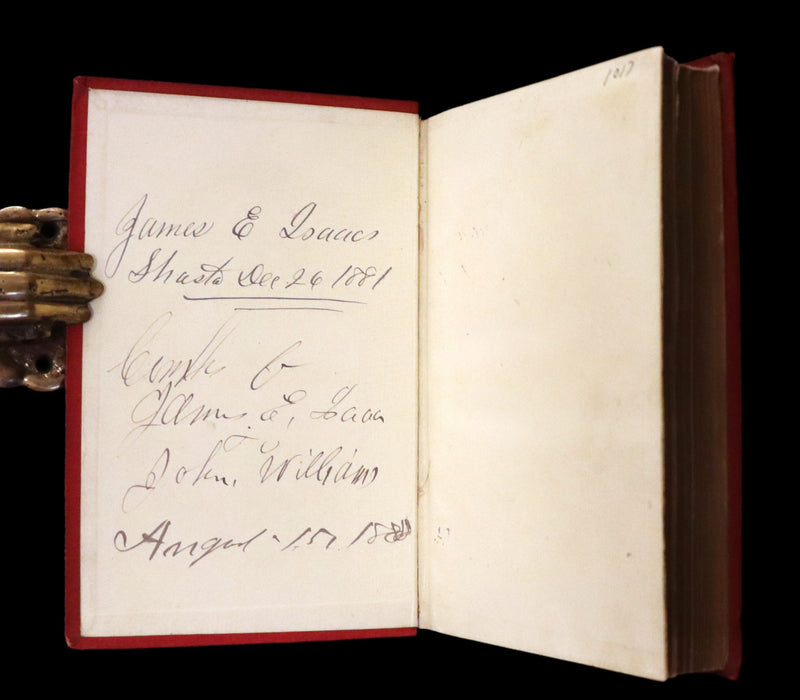 James E Isaacs
Shasta Dec 26 1881
James E, Isaac
John, Williams
August 15
1017